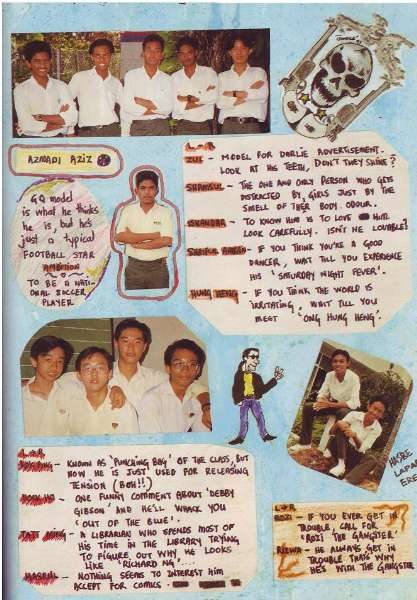 L→R
ZUL - MODEL FOR DARLIE ADVERTISEMENT.
LOOK AT HIS TEETH, DON'T THEY SHINE?
SHAMSUL - THE ONE AND ONLY PERSON WHO GETS
DISTRACTED BY GIRLS JUST BY THE
SMELL OF THEIR BODY ODOUR.
ISKANDAR - TO KNOW HIM IS TO LOVE HIM
LOOK CAREFULLY. ISN'T HE LOVABLE?
- IF YOU THINK YOU'RE A GOOD
DANCER, WAIT TILL YOU EXPERIENCE
HIS 'SATURDAY NIGHT FEVER'.
HUNG HENG - IF YOU THINK THE WORLD IS
IRRITATING, WAIT TILL YOU
MEET 'ONG HUNG HENG'.
AZMADI AZIZ
GQ MODEL
is what he thinks
he is, but he's
just a typical
FOOTBALL STAR
AMBITION
TO BE A NATI-
ONAL SOCCER
PLAYER.
L→R
- KNOWN AS 'PUNCHING BAG' OF THE CLASS, BUT
NOW HE IS JUST USED FOR RELEASING
TENSION (BOH!!)
- ONE FUNNY COMMENT ABOUT 'DEBBY
GIBSON' AND HE'LL WHACK YOU
'OUT OF THE BLUE'.
- A LIBRARIAN WHO SPENDS MOST OF
HIS TIME IN THE LIBRARY TRYING
TO FIGURE OUT WHY HE LOOKS
LIKE 'RICHARD NG'...
- NOTHING SEEMS TO INTEREST HIM
ACCEPT FOR COMICS.
L→R
ROZI - IF YOU EVER GET IN
TROUBLE, CALL FOR
'ROZI THE GANGSTER'
- HE ALWAYS GET IN
TROUBLE THAT'S WHY
HE'S WITH THE GANGSTER